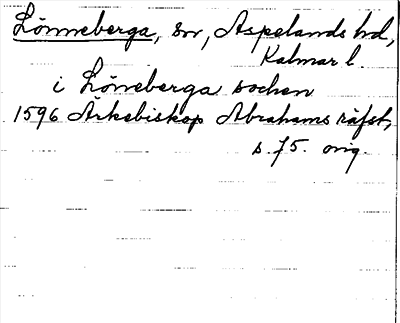 Lönneberga, sn, Aspelands hd,
Kalmar l.
i Löneberga sochen
1596 Ärkebiskop Abrahams räfst,
s. 75. orig.